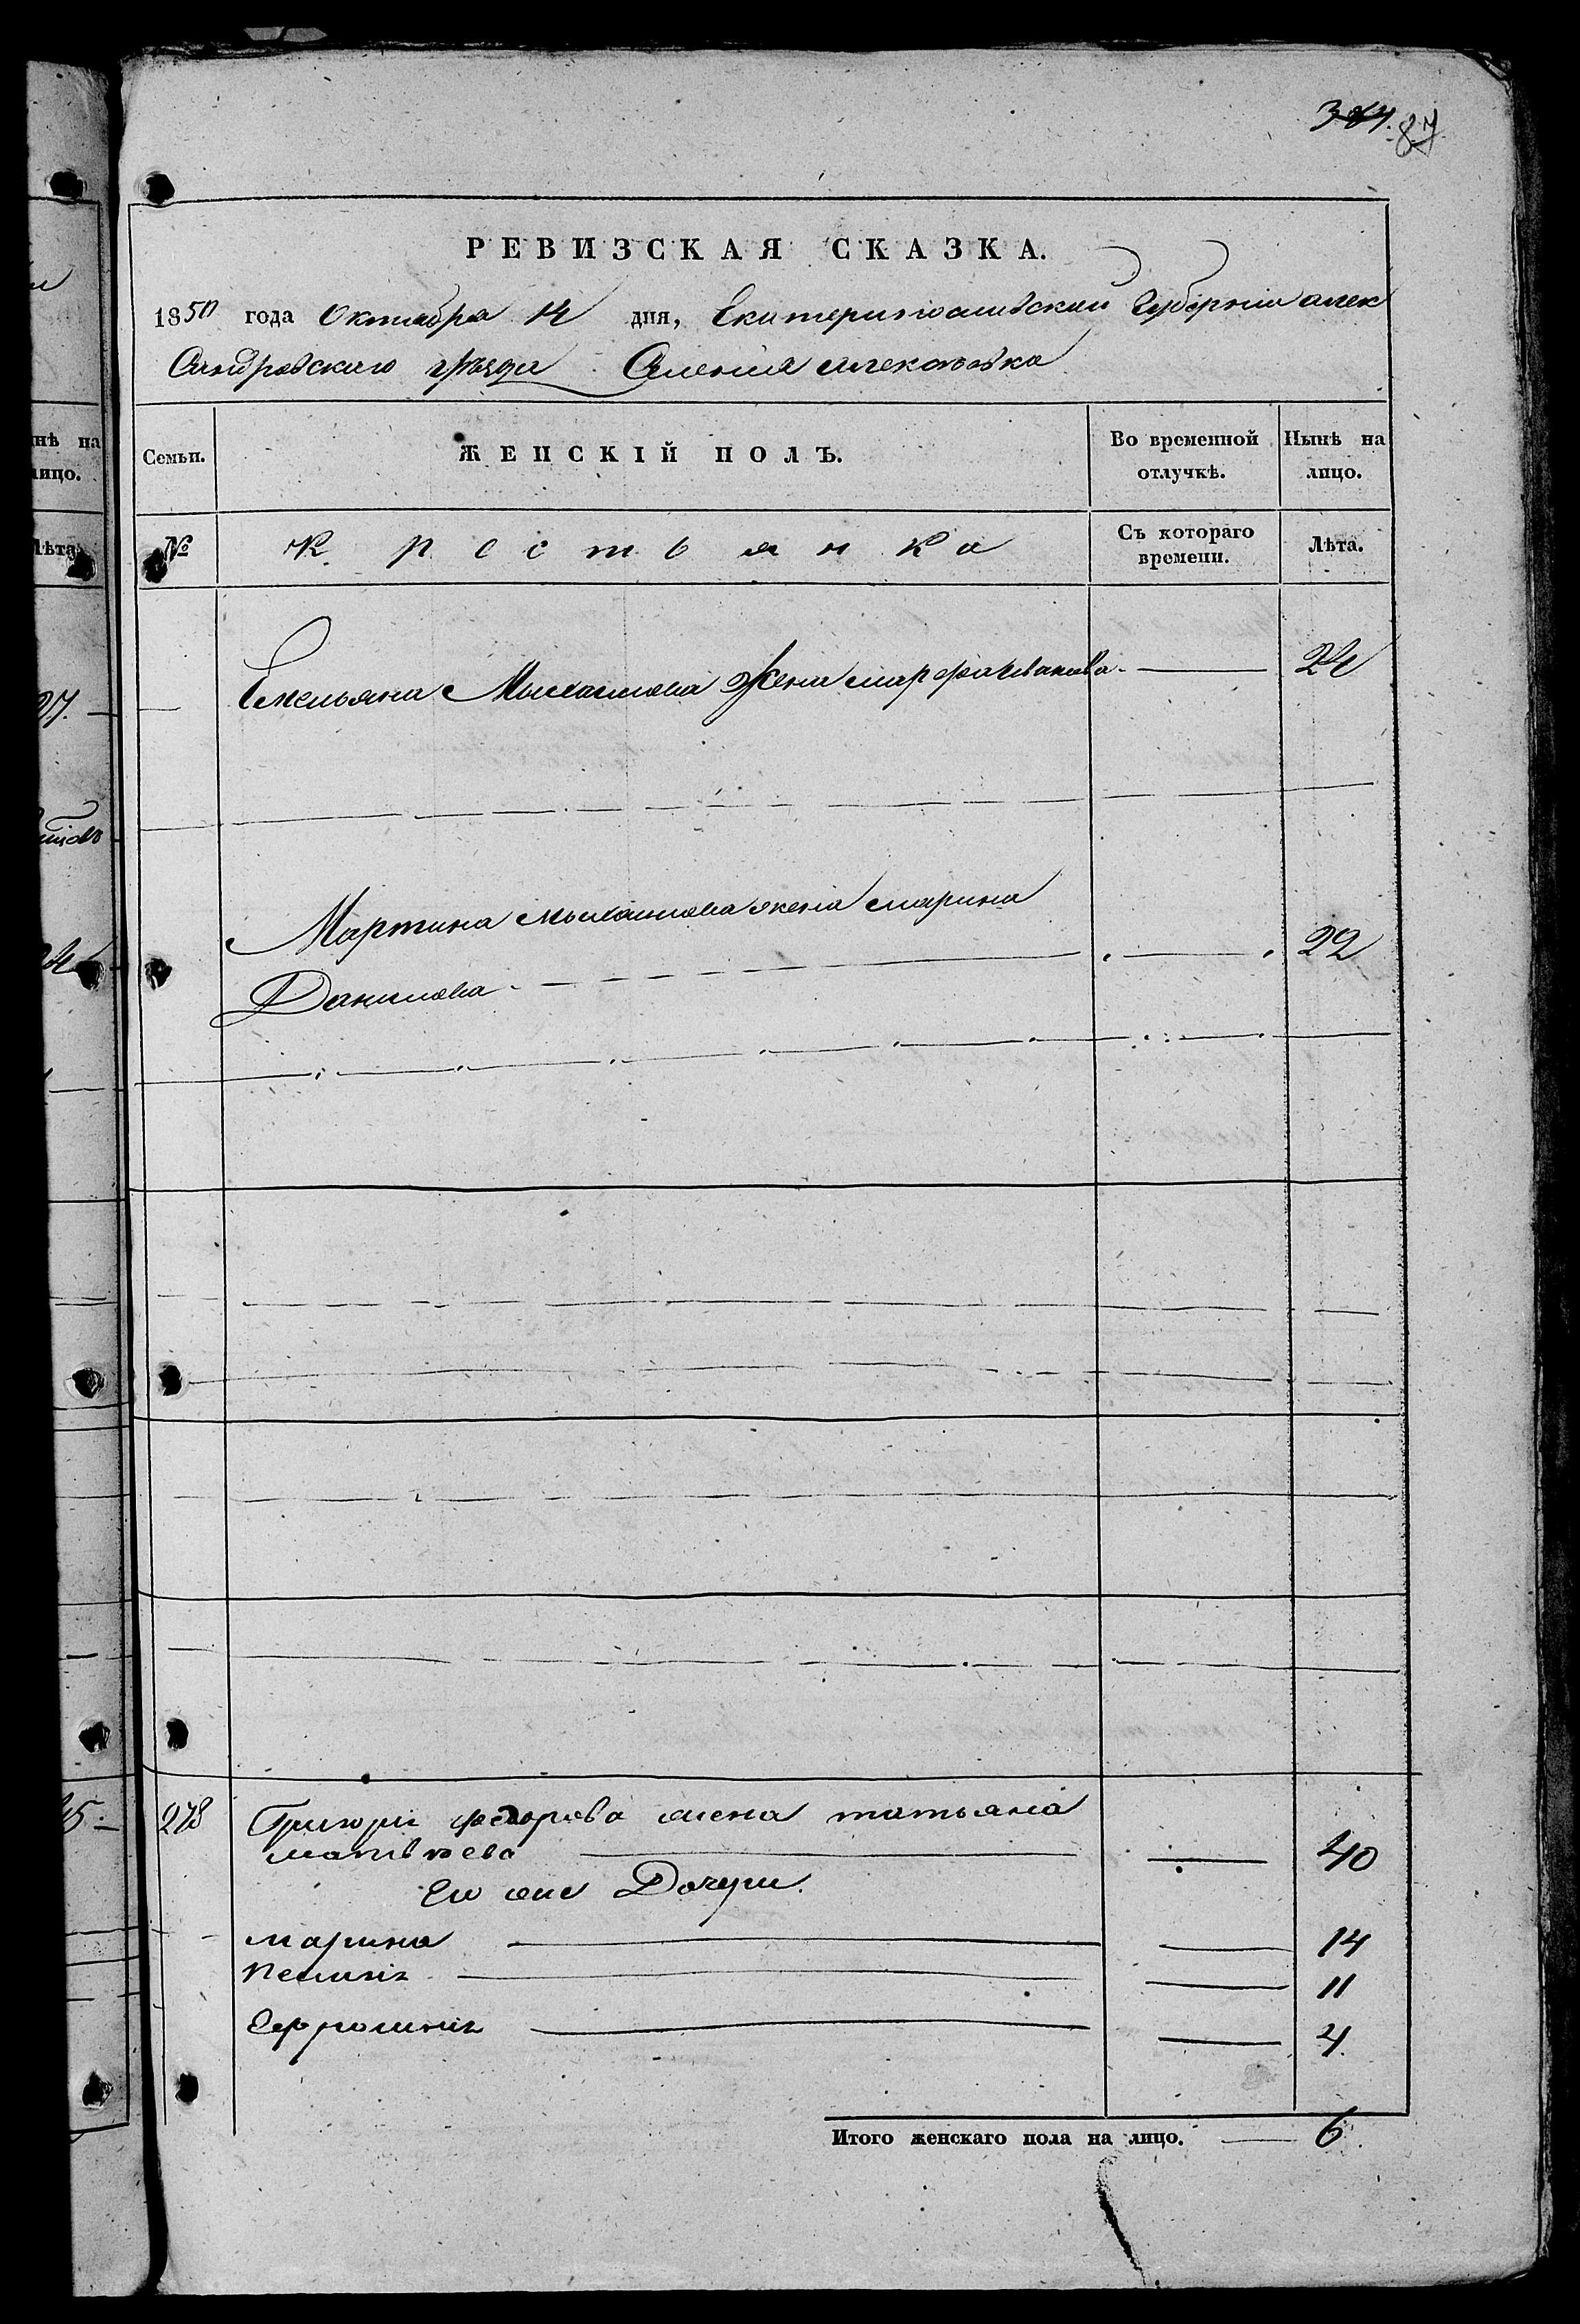 384. 87
РЕВИЗСКАЯ СКАЗКА.
1850 года Октября 14 дня, Екатеринославской Губерніи алек
Сандровскаго уѣзда Селенія
Семьи. ЖЕНСКІЙ ПОЛЪ. Во временной отлучкѣ. Нынѣ на лицо.
№ Крестьянка Съ котораго времени. Лѣта.
Емельяна Михайлова Жена марфа Иванова 24
Мартина михайлова жена марина 22
Данилова
278 Григорія федорова жена татьяна
матвѣева 40
Его же Дочери.
марина 14
пелагія 11
Ефросинія 4
Итого женскаго пола на лицо. 6
нѣ на
лицо.
Лѣта
27.